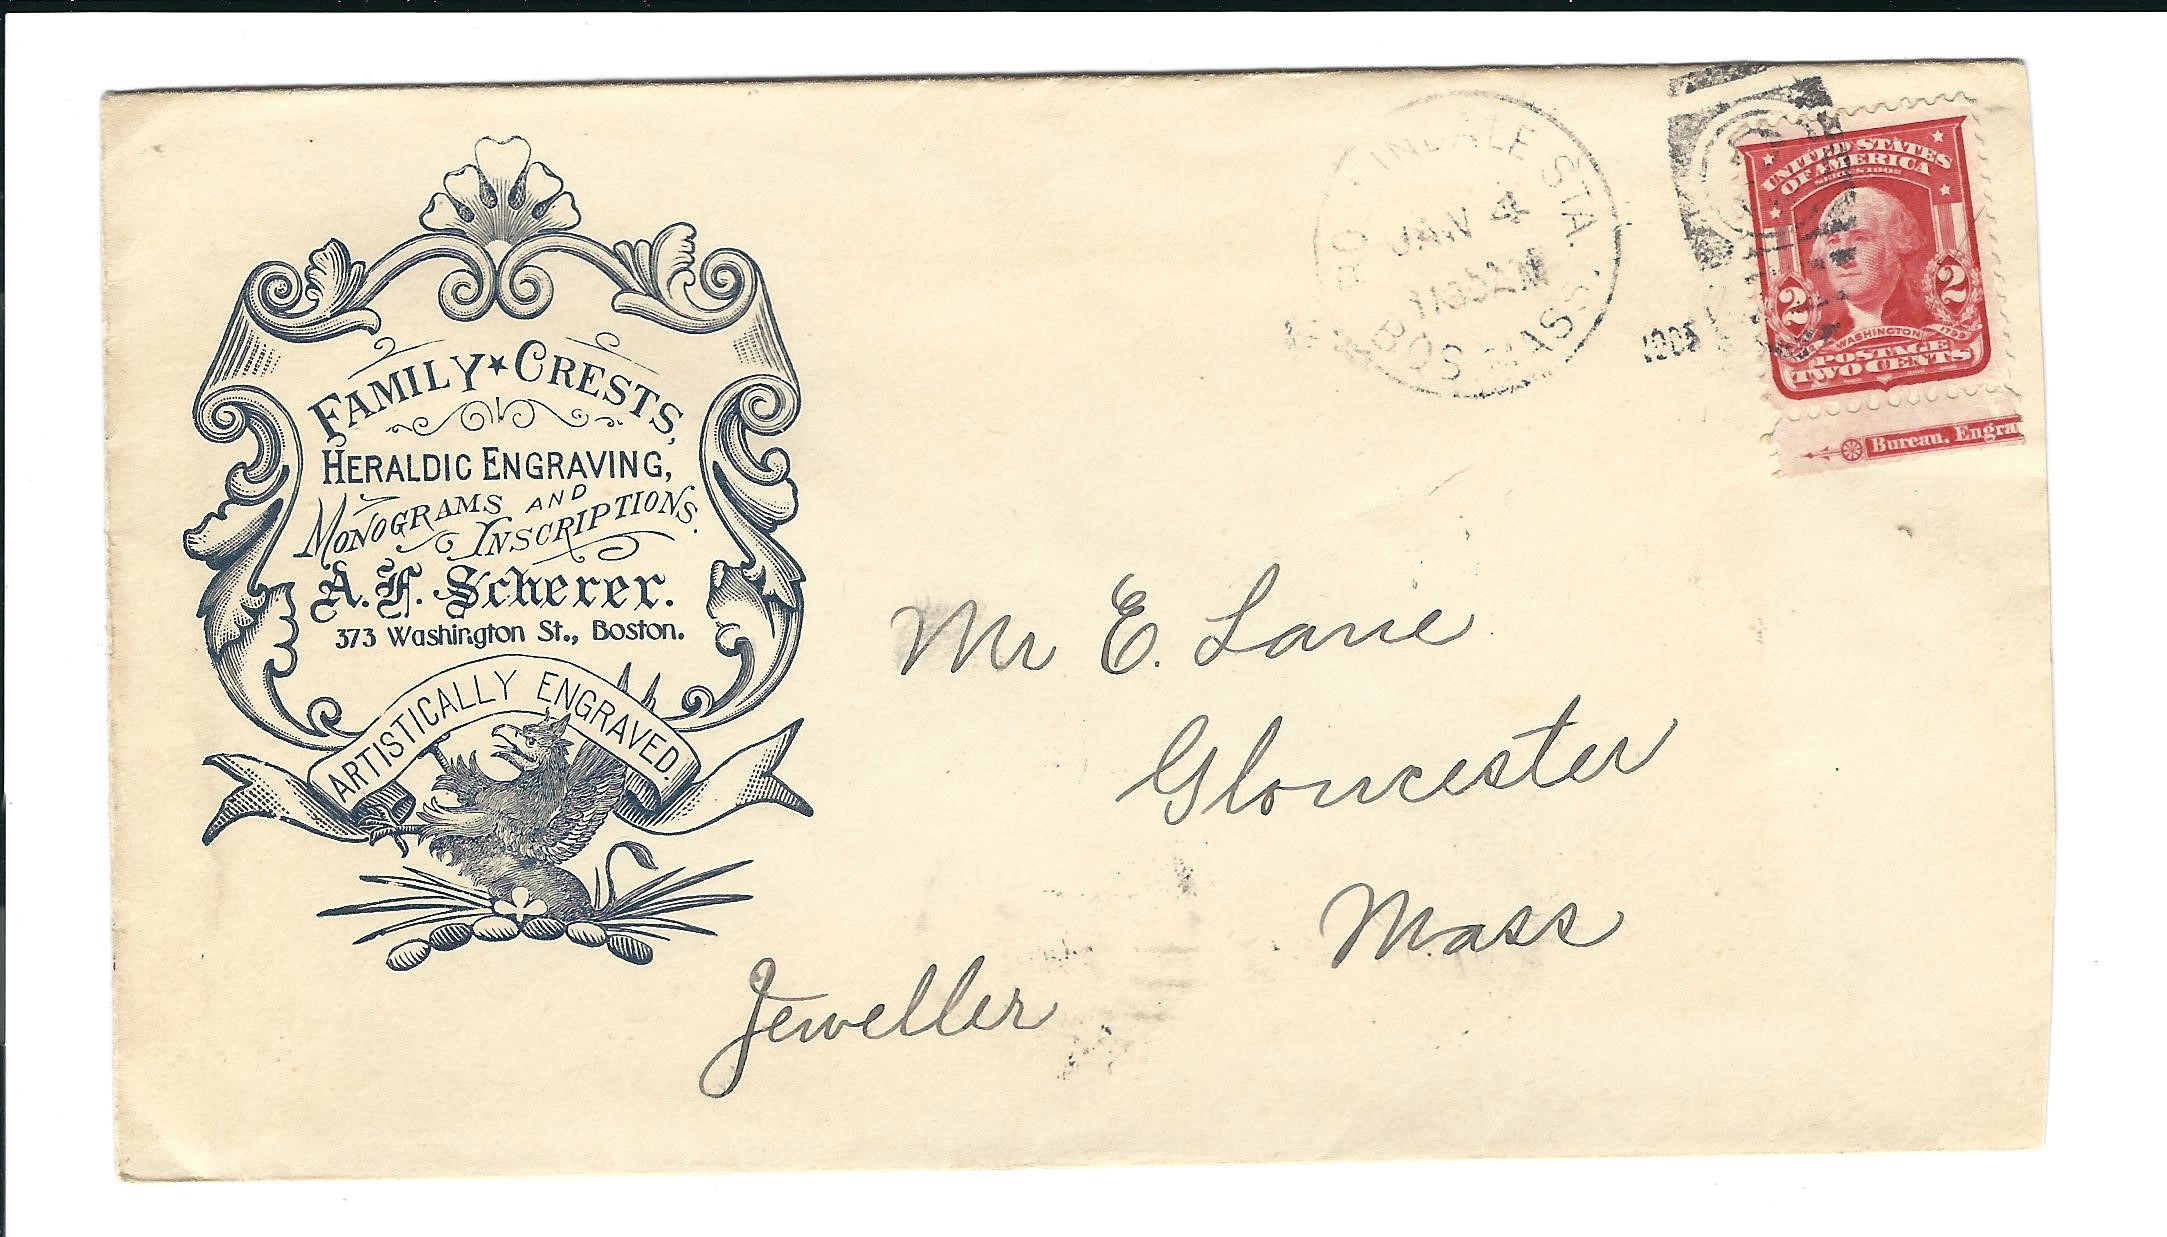 FAMILY ★ CRESTS,
HERALDIC ENGRAVING,
MONOGRAMS AND
INSCRIPTIONS.
A. F. Scherer.
373 Washington St., Boston.
ARTISTICALLY ENGRAVED.
INDALE STA.
JAN 4
BOS MASS.
UNITED STATES
OF AMERICA
SERIES 1902
2 2
WASHINGTON
POSTAGE
TWO CENTS
Bureau, Engra
Mr E. Lane
Gloucester
Mass
Jeweller